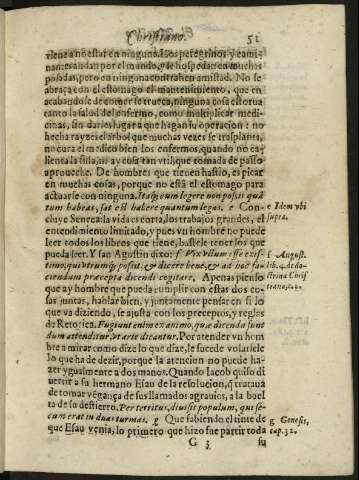 Christiano. 52
viene a no estar en ninguna. Los peregrinos y cami-
nan: escandan por el mundo, y se hospedan en muchas
posadas, pero en ninguna contrahen amistad. No se
abraça con el estomago el mantenimiento, que en
acabandose de comer le trueca, ninguna cosa estorua
tanto la salud del enfermo, como multiplicar medi-
cinas, sin darles lugar a que hagan su operacion: no
hecha rayzes el arbol que muchas vezes se trasplanta,
no cura el medico bien los enfermos, quando no ca-
lienta la silla, ni ay cosa tan vtil, que tomada de passo
aproueche. De hombres que tienen hastio, es picar
en muchas cosas, porque no está el estomago para
actuarse con ninguna. Itaq; cum legere non possis quã
tum habeas, sat est habere quantum legas. e Con-
cluye Seneca: la vida es corta, los trabajos grandes, el
entendimiento limitado, y pues vn hombre no puede
leer todos los libros que tiene, bastele tener los que
pueda leer. Y san Agustin dixo: f Vix vllum esse exis-
timo, qui vtrumq; possit, & dicere bene, & ad hoc fa-
ciendum præcepta dicendi cogitare. Apenas pienso
que ay hombre que pueda cumplir con estas dos co-
sas juntas, hablar bien, y juntamente pensar en si lo
que va diziendo, se ajusta con los preceptos, y reglas
de Retorica. Fugiunt enim ex animo, quæ dicenda sunt
dum attenditur, vt arte dicantur. Por atender vn hom
bre a mirar como dize lo que dize, le sucede volarsele
lo que ha de dezir, porque la atencion no puede ha-
zer ygualmente a dos manos. Quando Iacob quiso di
uertir a su hermano Esau de la resolucion, q̃ trataua
de tomar vẽgança de sus llamados agrauios, a la buel
ta de su destierro. Perterritus, diuisit populum, qui se-
cum erat in duas turmas. g Que sabiendo el tinte de
que Esau venia, lo primero que hizo fue partir toda
G 3 su
e Idem vbi
supra.
f August.
lib. 4. de do-
ctrina Chris
tiana, c.
g Genesis,
cap. 32.